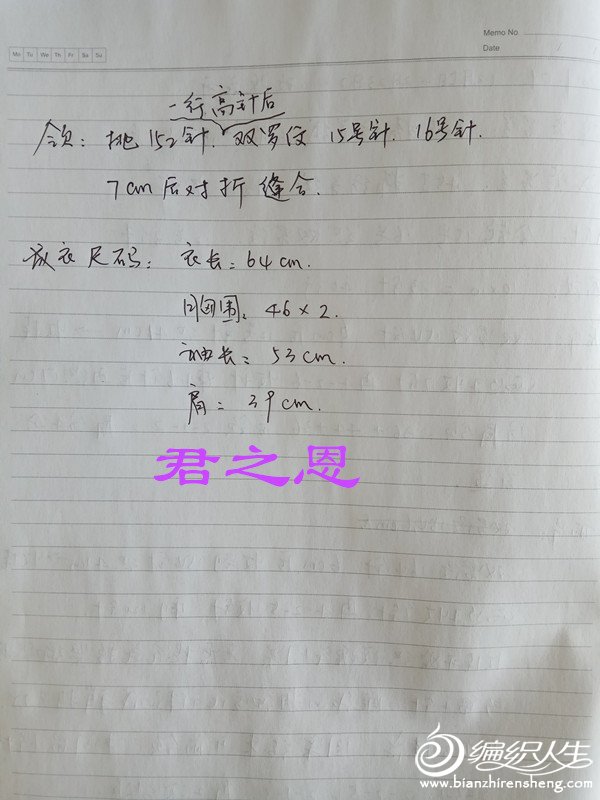 Memo No.
Mo Tu We Th Fr Sa Su
Date / /
一行高针后
领: 挑152针. 双罗纹 15号针. 16号针.
7cm后对折缝合.
成衣尺码: 衣长: 64cm.
胸围: 46×2.
袖长: 53cm.
肩: 39cm.
君之恩
编织人生
www.bianzhirensheng.com